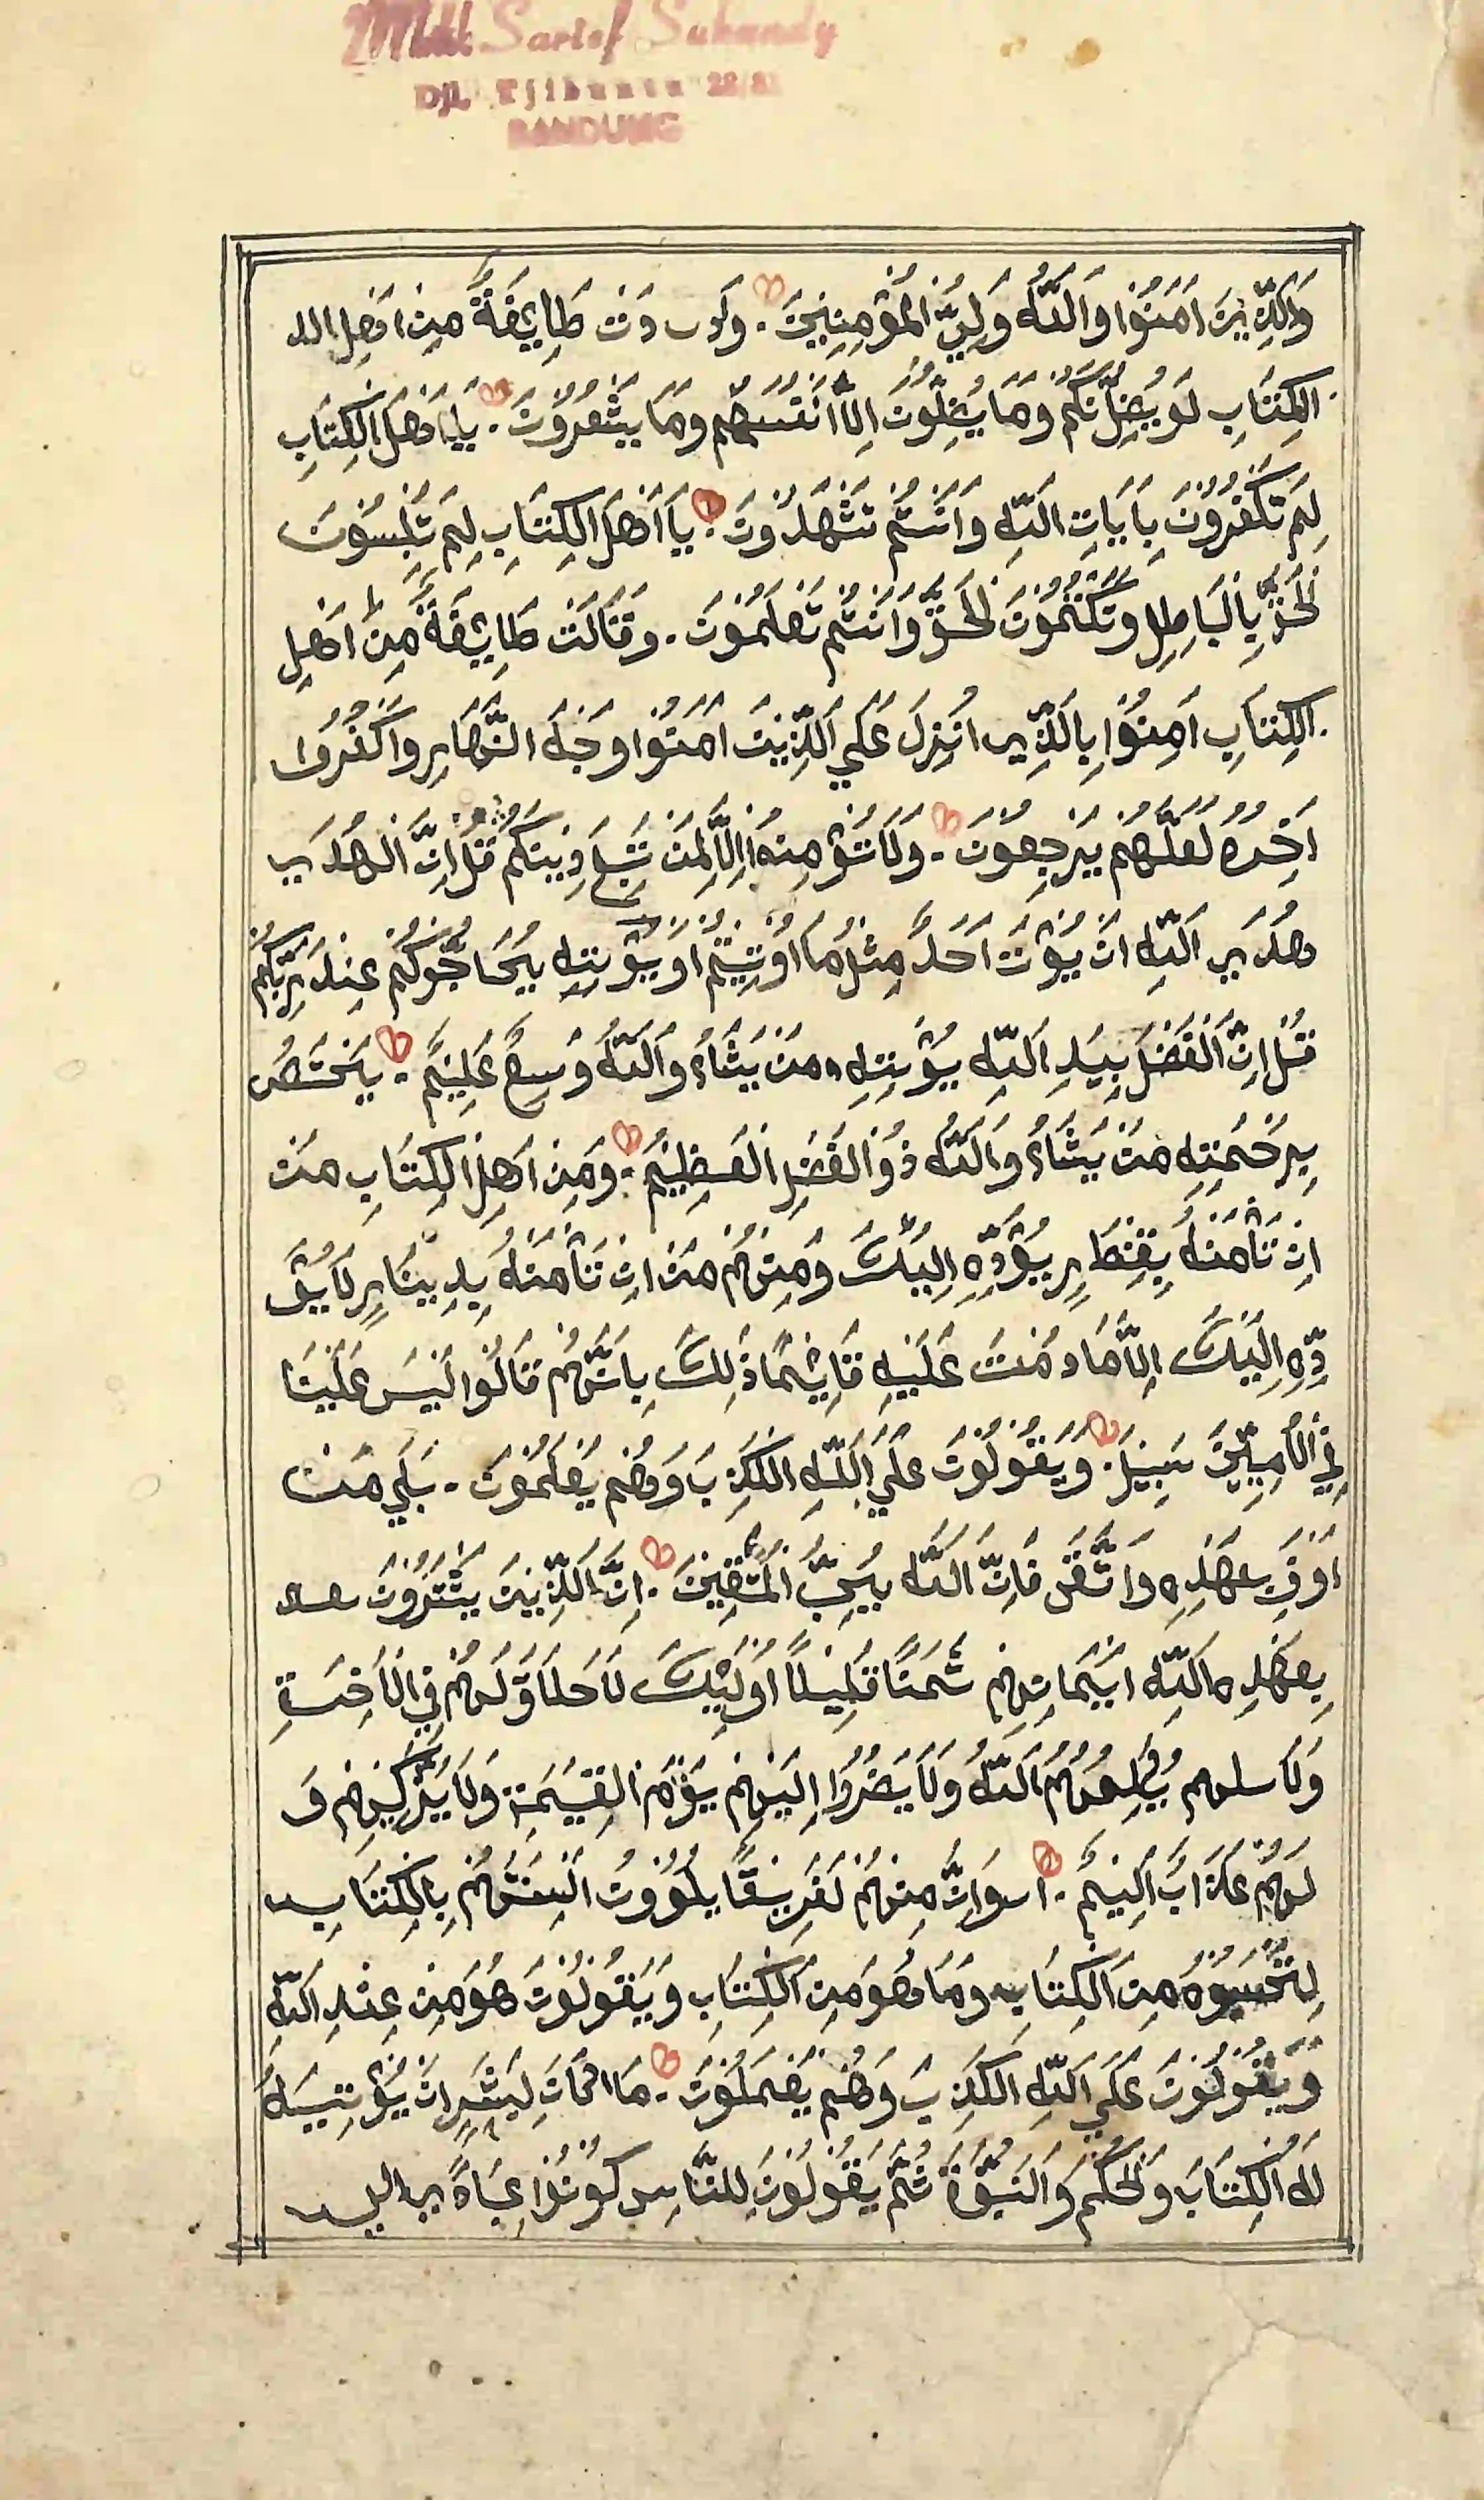 Moh. Sarief Suhandy
Djl. Tjibuntu 22/82
BANDUNG
وَالَّذِيْنَ اٰمَنُوْا وَاللّٰهُ وَلِيُّ الْمُؤْمِنِيْنَ وَدَّتْ طَاىِٕفَةٌ مِنْ اَهْلِ الـ
الْكِتَابِ لَوْ يُضِلُّوْنَكُمْ وَمَا يُضِلُّوْنَ اِلَّا اَنْفُسَهُمْ وَمَا يَشْعُرُوْنَ يَا اَهْلَ الْكِتَابِ
لِمَ تَكْفُرُوْنَ بِاٰيَاتِ اللّٰهِ وَاَنْتُمْ تَشْهَدُوْنَ يَا اَهْلَ الْكِتَابِ لِمَ تَلْبِسُوْنَ
لْحَقَّ بِالْبَاطِلِ وَتَكْتُمُوْنَ لْحَقَّ وَاَنْتُمْ تَعْلَمُوْنَ وَقَالَتْ طَاىِٕفَةٌ مِنْ اَهْلِ
الْكِتَابِ اٰمِنُوْا بِالَّذِيْ اُنْزِلَ عَلَى الَّذِيْنَ اٰمَنُوْا وَجْهَ النَّهَارِ وَاكْفُرُوْا
اٰخِرَهُ لَعَلَّهُمْ يَرْجِعُوْنَ وَلَا تُؤْمِنُوْا اِلَّا لِمَنْ تَبِعَ دِيْنَكُمْ قُلْ اِنَّ الْهُدَى
هُدَى اللّٰهِ اَنْ يُؤْتَ اَحَدٌ مِثْلَ مَا اُوْتِيْتُمْ اَوْ يُؤْتِيْهِ يُحَاجُّوْكُمْ عِنْدَ رَبِّكُمْ
قُلْ اِنَّ الْفَضْلَ بِيَدِ اللّٰهِ يُؤْتِيْهِ مَنْ يَشَاءُ وَاللّٰهُ وَسِعٌ عَلِيْمٌ يَخْتَصُّ
بِرَحْمَتِهِ مَنْ يَشَاءُ وَاللّٰهُ ذُوْالْفَضْلِ الْعَظِيْمِ وَمِنْ اَهْلِ الْكِتَابِ مَنْ
اِنْ تَأْمَنْهُ بِقِنْطَارٍ يُؤَدِّهِ اِلَيْكَ وَمِنْهُمْ مَنْ اِنْ تَأْمَنْهُ بِدِيْنَارٍ لَا يُؤَ
دِّهِ اِلَيْكَ اِلَّا مَا دُمْتَ عَلَيْهِ قَاىِٕمًا ذٰلِكَ بِاَنَّهُمْ قَالُوْا لَيْسَ عَلَيْنَا
فِي الْاُمِّيِّيْنَ سَبِيْلٌ وَيَقُوْلُوْنَ عَلَى اللّٰهِ الْكَذِبَ وَهُمْ يَعْلَمُوْنَ بَلٰى مَنْ
اَوْفٰى بِعَهْدِهِ وَاتَّقٰى فَاِنَّ اللّٰهَ يُحِبُّ الْمُتَّقِيْنَ اِنَّ الَّذِيْنَ يَشْتَرُوْنَ
بِعَهْدِ اللّٰهِ اَيْمَانِهِمْ ثَمَنًا قَلِيْلًا اُولٰىِٕكَ لَا خَلَاقَ لَهُمْ فِي الْاٰخِرَةِ
وَلَا يُكَلِّمُهُمُ اللّٰهُ وَلَا يَنْظُرُوْا اِلَيْهِمْ يَوْمَ الْقِيٰمَةِ وَلَا يُزَكِّيْهِمْ وَ
لَهُمْ عَذَابٌ اَلِيْمٌ وَاِنَّ مِنْهُمْ لَفَرِيْقًا يَلْوُوْنَ اَلْسِنَتَهُمْ بِالْكِتَابِ
لِتَحْسَبُوْهُ مِنَ الْكِتَابِ وَمَا هُوَ مِنَ الْكِتَابِ وَيَقُوْلُوْنَ هُوَ مِنْ عِنْدِ اللّٰهِ
وَيَقُوْلُوْنَ عَلَى اللّٰهِ الْكَذِبَ وَهُمْ يَعْمَلُوْنَ مَا كَانَ لِبَشَرٍ اَنْ يُؤْتِيَهُ
لَهُ الْكِتَابَ وَلْحُكْمَ وَالنُّبُوَّةَ ثُمَّ يَقُوْلُوْنَ لِلنَّاسِ كُوْنُوْا عِبَادًا